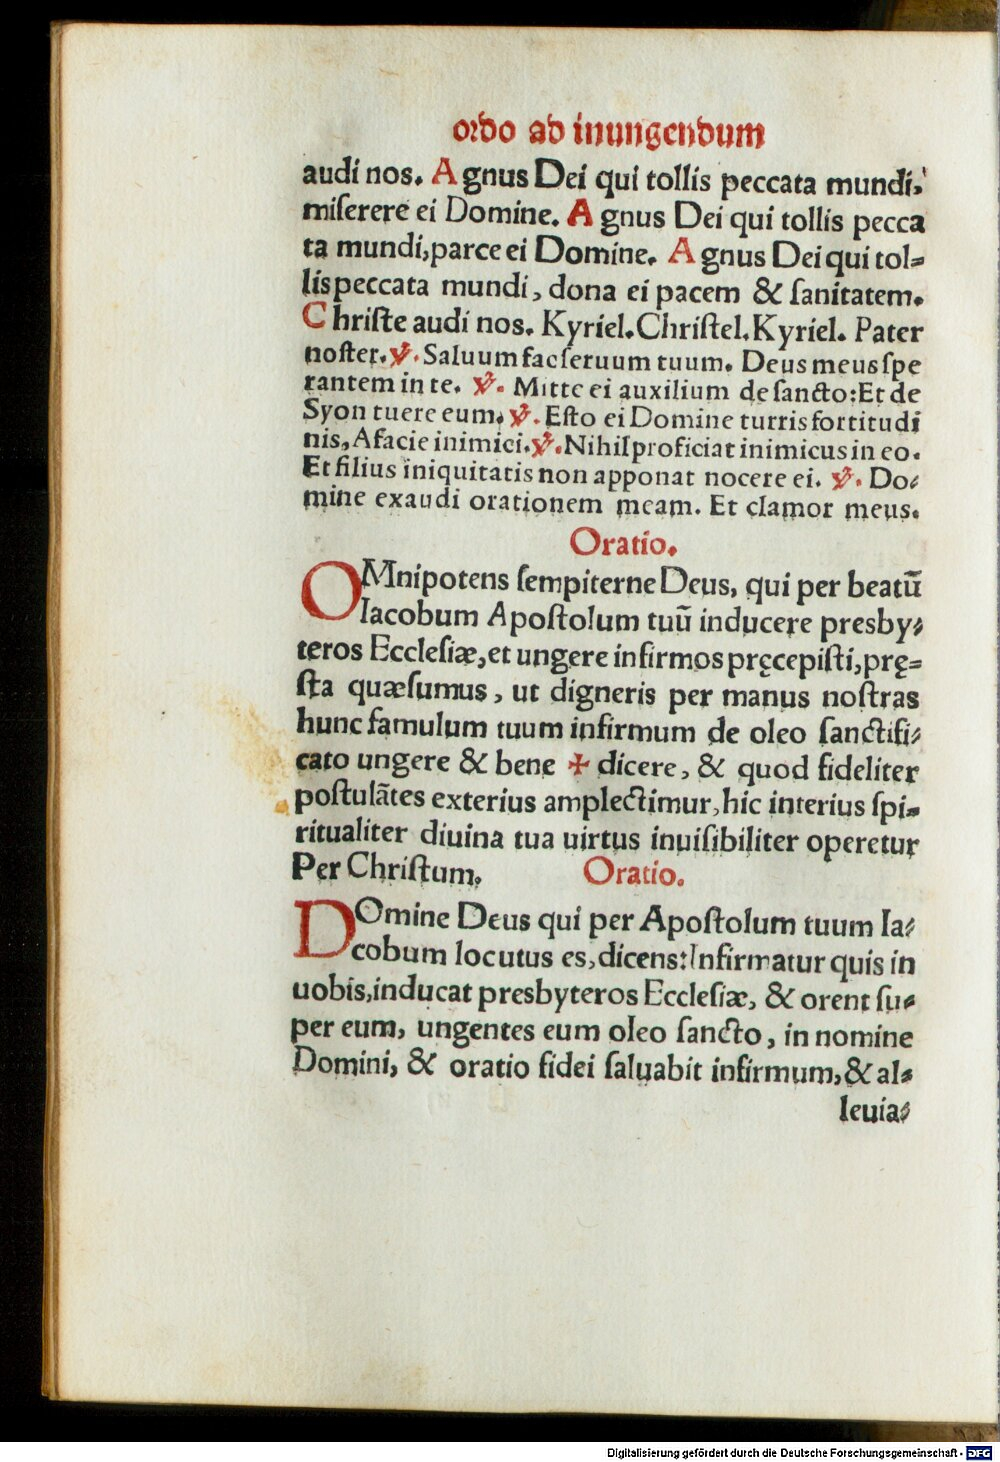 ordo ad inungendum
audi nos. Agnus Dei qui tollis peccata mundi,
miſerere ei Domine. Agnus Dei qui tollis pecca
ta mundi, parce ei Domine. Agnus Dei qui tol-
lis peccata mundi, dona ei pacem & ſanitatem.
Chriſte audi nos. Kyriel. Chriſtel. Kyriel. Pater
noſter. ℣. Saluum fac ſeruum tuum. Deus meus ſpe
rantem in te. ℣. Mitte ei auxilium de ſancto: Et de
Syon tuere eum. ℣. Eſto ei Domine turris fortitudi
nis, A facie inimici. ℣. Nihil proficiat inimicus in eo.
Et filius iniquitatis non apponat nocere ei. ℣. Do-
mine exaudi orationem meam. Et clamor meus.
Oratio.
OMnipotens ſempiterne Deus, qui per beatū
Iacobum Apoſtolum tuū inducere presby-
teros Eccleſiæ, et ungere infirmos pręcepiſti, prę-
ſta quæſumus, ut digneris per manus noſtras
hunc famulum tuum infirmum de oleo ſanctifi-
cato ungere & bene ✠ dicere, & quod fideliter
poſtulātes exterius amplectimur, hic interius ſpi-
ritualiter diuina tua uirtus inuiſibiliter operetur
Per Chriſtum. Oratio.
DOmine Deus qui per Apoſtolum tuum Ia-
cobum locutus es, dicens: Infirmatur quis in
uobis, inducat presbyteros Eccleſiæ, & orent ſu-
per eum, ungentes eum oleo ſancto, in nomine
Domini, & oratio fidei ſaluabit infirmum, & al-
leuia-
Digitalisierung gefördert durch die Deutsche Forschungsgemeinschaft - DFG